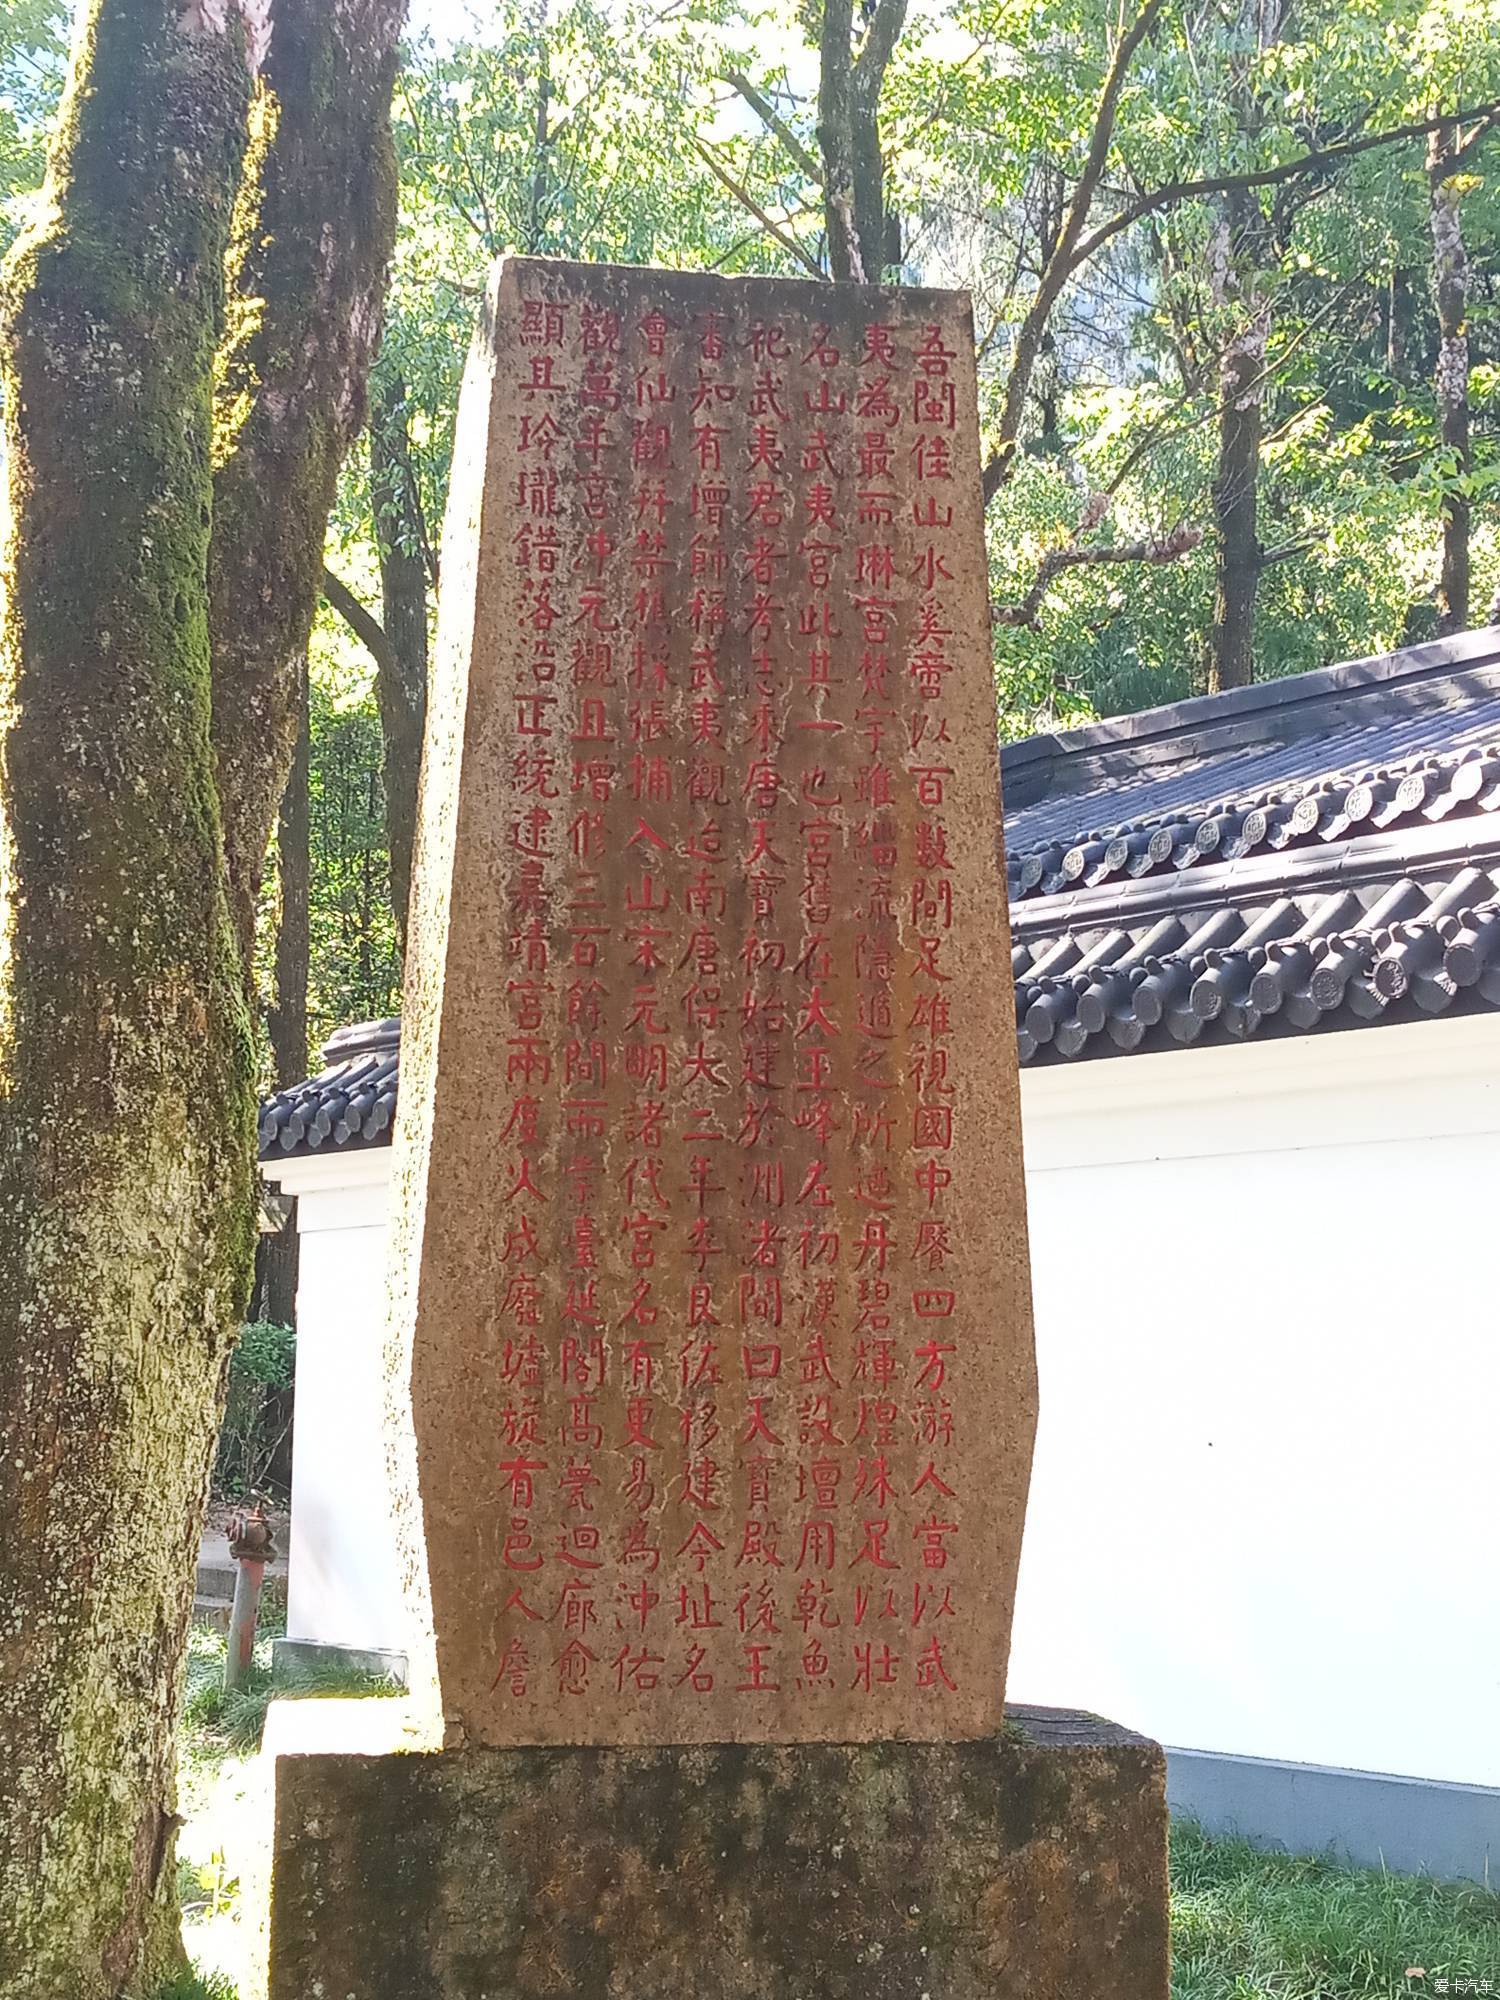 吾閩佳山水奚啻以百數間足雄視國中饜四方游人當以武
夷為最而琳宮梵宇雖緇流隱遁之所迺丹碧輝煌殊足以壯
名山武夷宮此其一也宮舊在大王峰左初漢武設壇用乾魚
祀武夷君者考志乘唐天寶初始建於洲渚間曰天寶殿後王
審知有增飾稱武夷觀迨南唐保大二年李良佐移建今址名
會仙觀幷禁樵採張捕入山宋元明諸代宮名有更易為沖佑
觀萬年宮沖元觀且增修三百餘間而崇臺延閣高甍迴廊愈
顯其玲瓏錯落沿正統逮嘉靖宮兩度火成廢墟旋有邑人詹
爱卡汽车